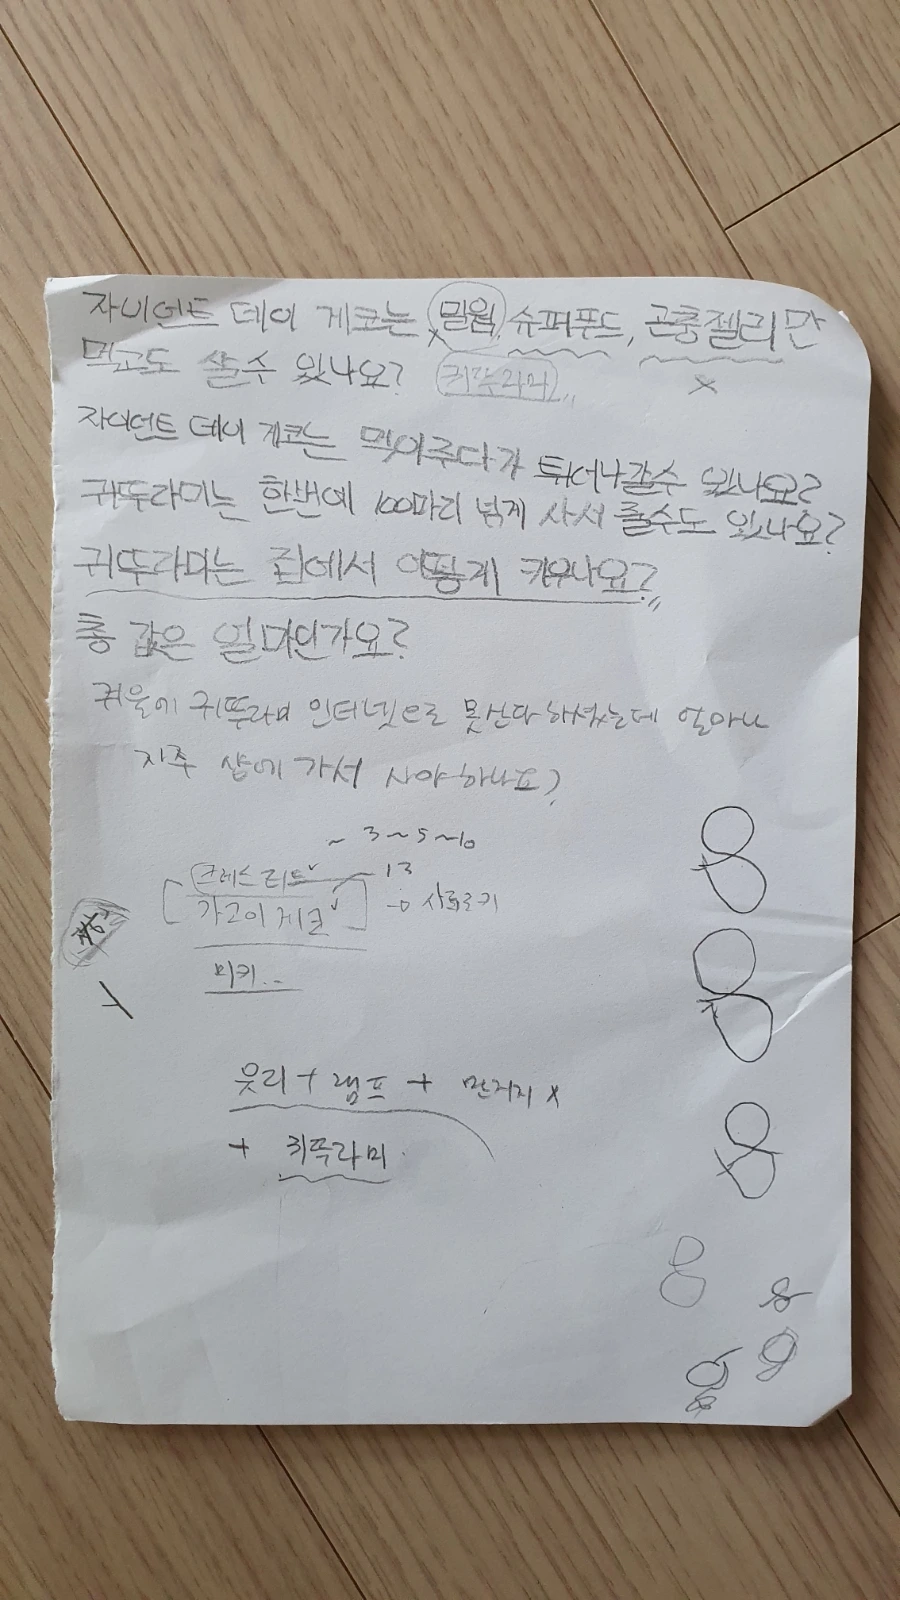 자이언트 데이 게코는 밀웜, 슈퍼푸드, 곤충젤리만
먹고도 살수 있나요? 귀뚜라미
x
자이언트 데이 게코는 먹이주다가 튀어나갈수 있나요?
귀뚜라미는 한번에 100마리 넘게 사서 줄수도 있나요?
귀뚜라미는 집에서 어떻게 키우나요?
총 값은 얼마인가요?
겨울에 귀뚜라미 인터넷으로 못산다 하셨는데 얼마나
자주 샵에 가서 사야하나요?
~ 3~5~10
크레스티드 13
가고일 게코 → 사료로키
미키..
유리 + 램프 + 만지지 x
+ 귀뚜라미